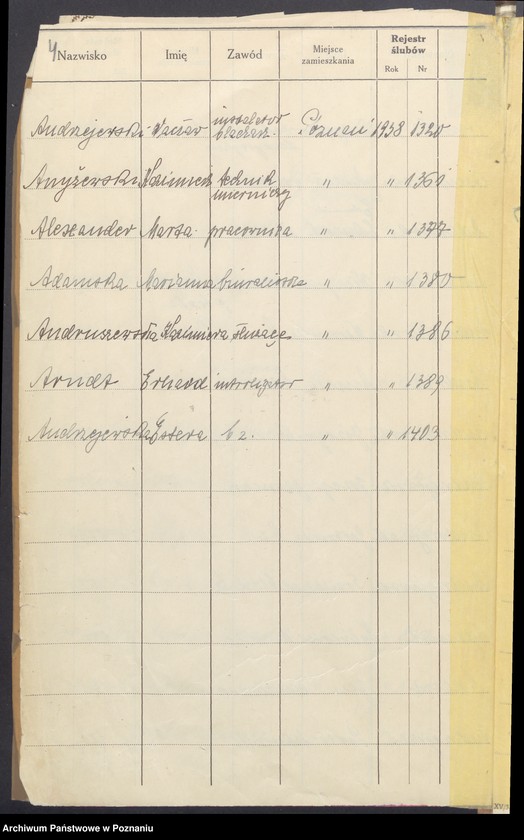 4
Nazwisko Imię Zawód Miejsce zamieszkania Rejestr ślubów
Rok Nr
Andrzejewski Wacław instalator blachar. Poznań 1938 1320
Anyżewski Kazimierz technik mierniczy " " 1361
Alexander Marta pracownica " " 1377
Adamska Marianna biuralistka " " 1380
Andruszewska Kazimiera służąca " " 1386
Arndt Erhard introligator " " 1389
Andrzejewska Estera bz. " " 1403
XV/3
Archiwum Państwowe w Poznaniu